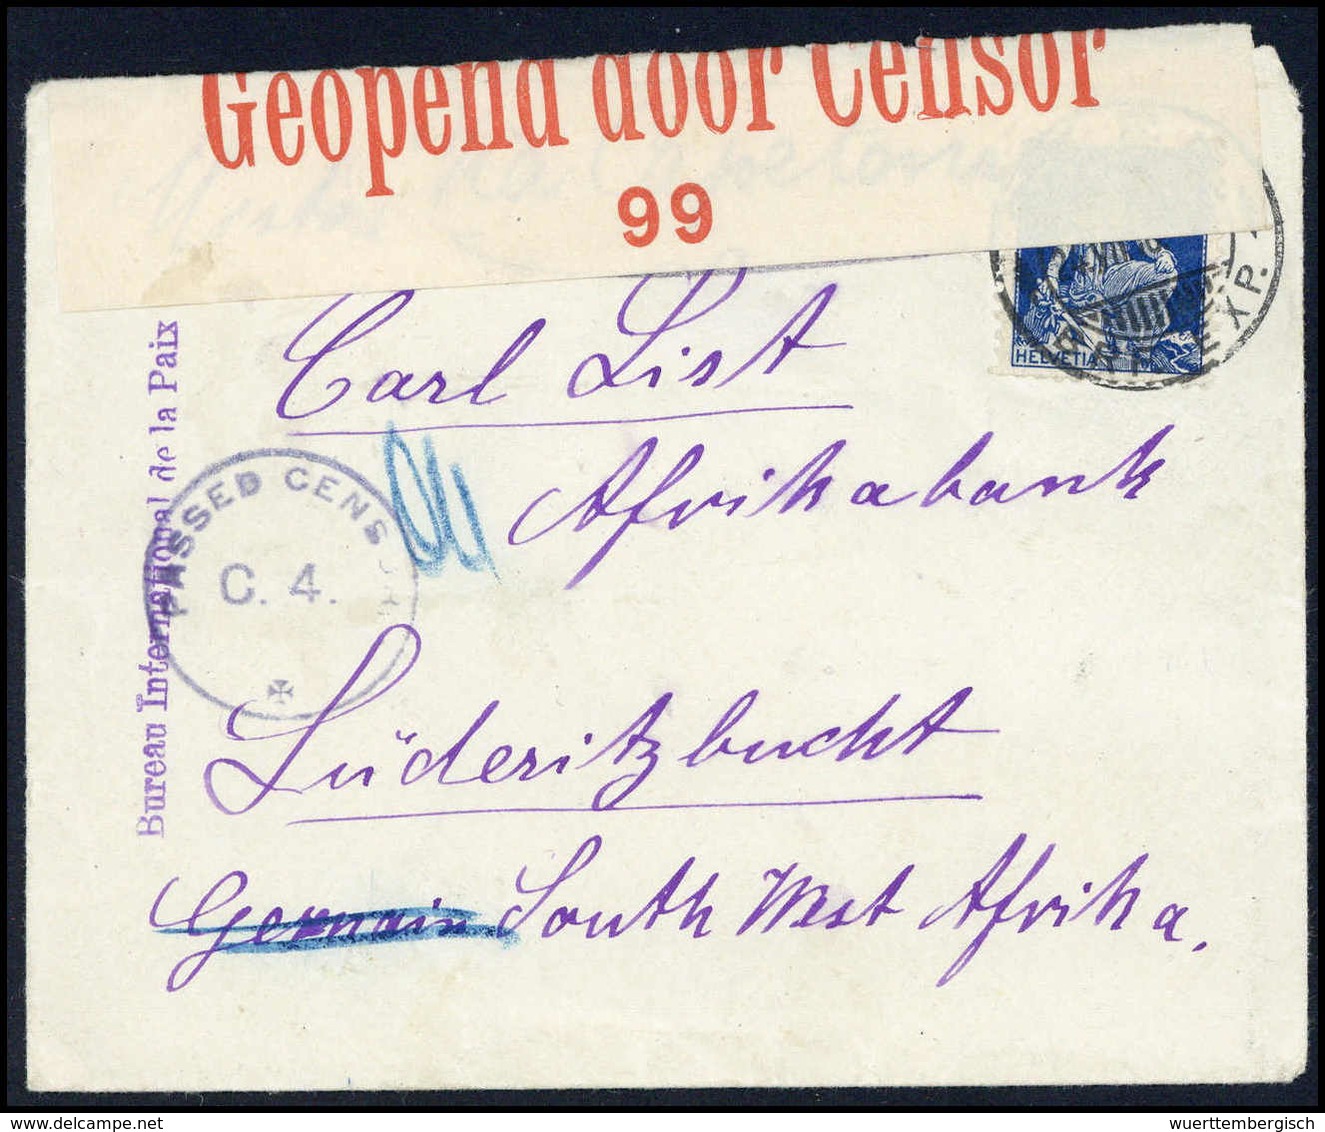 Geopend door Censor
99
Carl List
Afrikabank
Lüderitzbucht
German South West Afrika.
Bureau International de la Paix
PASSED CENSOR
C. 4.
HELVETIA
BERN EXP.
delcampe.net
wuerttembergisch